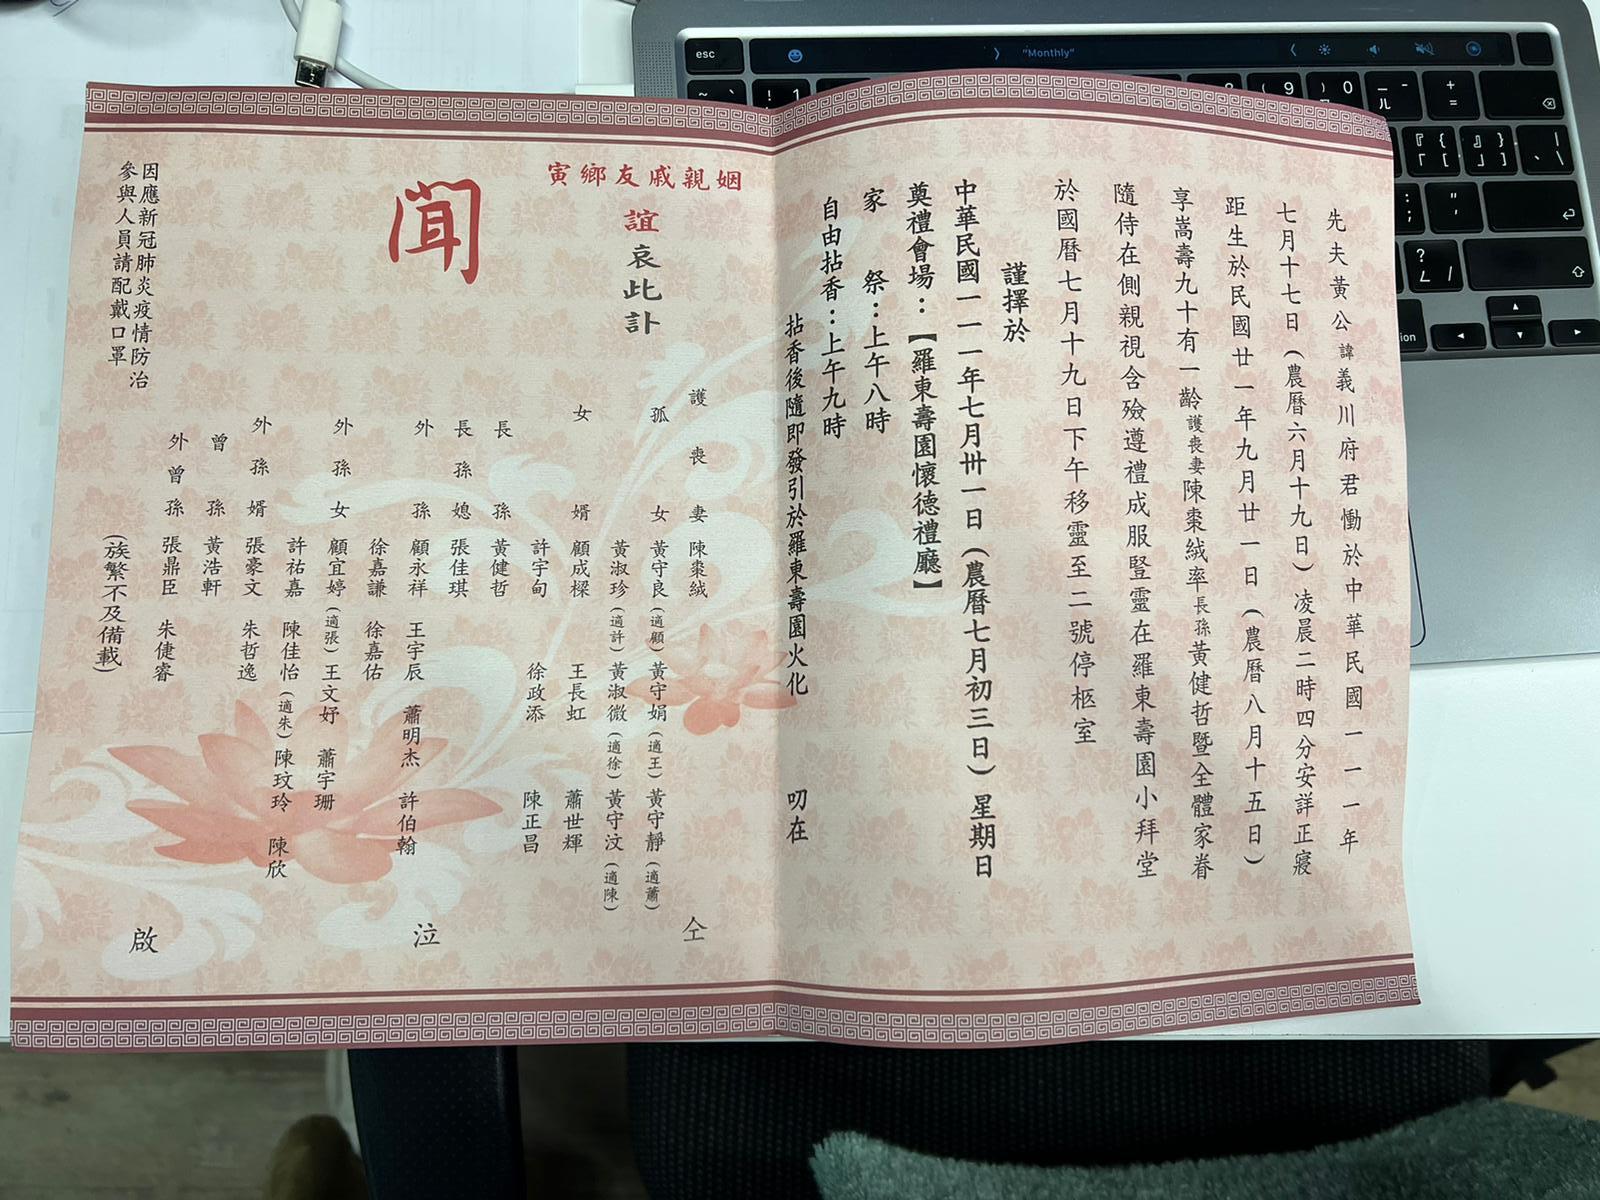 先夫黃公諱義川府君慟於中華民國一一一年
七月十七日(農曆六月十九日)凌晨二時四分安詳正寢
距生於民國廿一年九月廿一日(農曆八月十五日)
享嵩壽九十有一齡護喪妻陳棗絨率長孫黃健哲暨全體家眷
隨侍在側親視含殮遵禮成服豎靈在羅東壽園小拜堂
於國曆七月十九日下午移靈至二號停柩室
謹擇於
中華民國一一一年七月卅一日(農曆七月初三日)星期日
奠禮會場：【羅東壽園懷德禮廳】
家祭：上午八時
自由拈香：上午九時
拈香後隨即發引於羅東壽園火化 叨在
姻親戚友鄉寅
誼哀此訃
聞
護喪妻 陳棗絨
孤女 黃守良(適顧) 黃守娟(適王) 黃守靜(適蕭)
黃淑珍(適許) 黃淑微(適徐) 黃守汶(適陳)
女婿 顧成樑 王長虹 蕭世輝
許宇甸 徐政添 陳正昌
長孫 黃健哲
長孫媳 張佳琪
外孫 顧永祥 王宇辰 蕭明杰 許伯翰
徐嘉謙 徐嘉佑
外孫女 顧宜婷(適張) 王文妤 蕭宇珊
許祐嘉 陳佳怡(適朱) 陳玟玲 陳欣
外孫婿 張豪文 朱哲逸
曾孫 黃浩軒
外曾孫 張鼎臣 朱倢睿
(族繁不及備載)
仝泣啟
因應新冠肺炎疫情防治
參與人員請配戴口罩
esc
"Monthly"